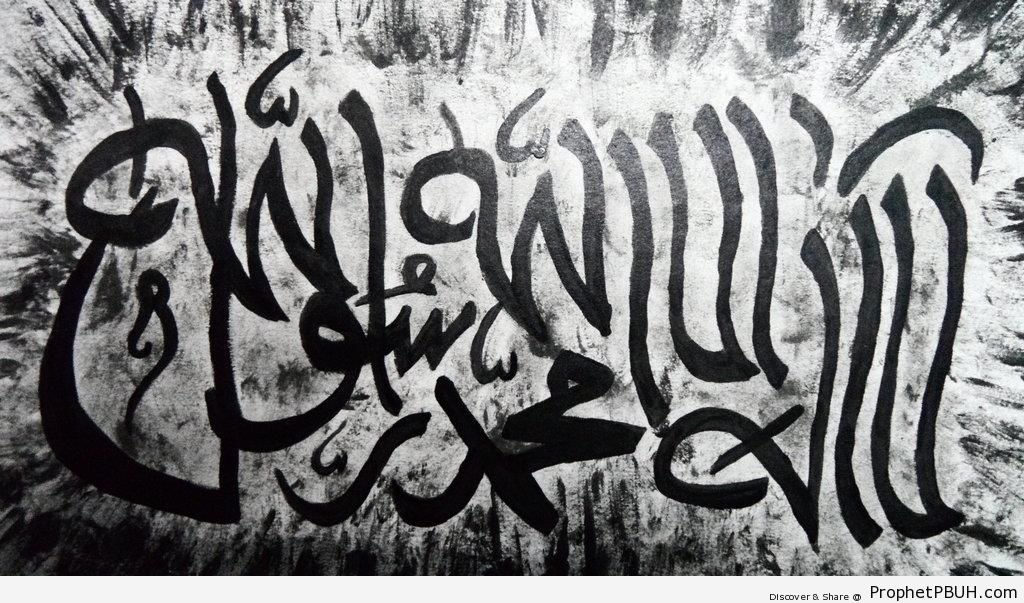 لا إله إلا الله
محمد رسول الله
Discover & Share @ ProphetPBUH.com